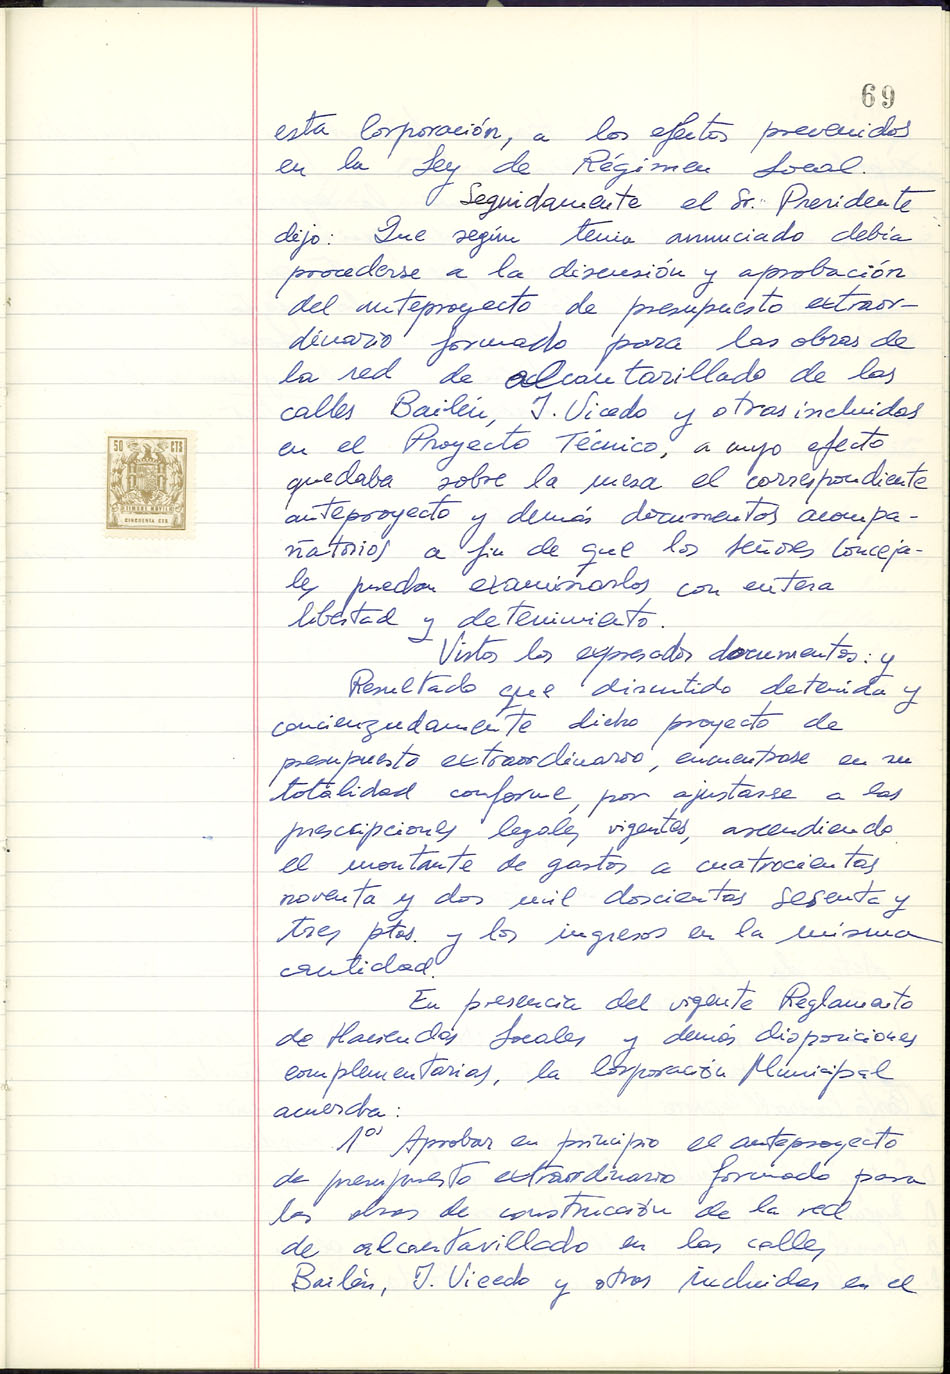 69
esta Corporación, a los efectos prevenidos
en la Ley de Régimen Local.
Seguidamente el Sr. Presidente
dijo: Que según tenia anunciado debía
procederse a la discusión y aprobación
del anteproyecto de presupuesto extraor-
dinario formado para las obras de
la red de alcantarillado de las
calles Bailén, J. Vicedo y otras incluidas
en el Proyecto Técnico, a cuyo efecto
quedaba sobre la mesa el correspondiente
50 CTS
anteproyecto y demás documentos acompa-
CINCUENTA CTS
ñatorios a fin de que los señores Conceja-
les puedan examinarlos con entera
libertad y detenimiento.
Vistos los expresados documentos: y
Resultado que discutido detenida y
concienzudamente dicho proyecto de
presupuesto extraordinario, encuentrase en su
totalidad conforme, por ajustarse a las
prescripciones legales vigentes, ascendiendo
el montante de gastos a cuatrocientas
noventa y dos mil doscientas sesenta y
tres ptas. y los ingresos en la misma
cantidad.
En presencia del vigente Reglamento
de Haciendas Locales y demás disposiciones
complementarias, la Corporación Municipal
acuerda:
1º Aprobar en principio el anteproyecto
de presupuesto extraordinario formado para
las obras de construcción de la red
de alcantarillado en las calles
Bailén, J. Vicedo y otras incluidas en el